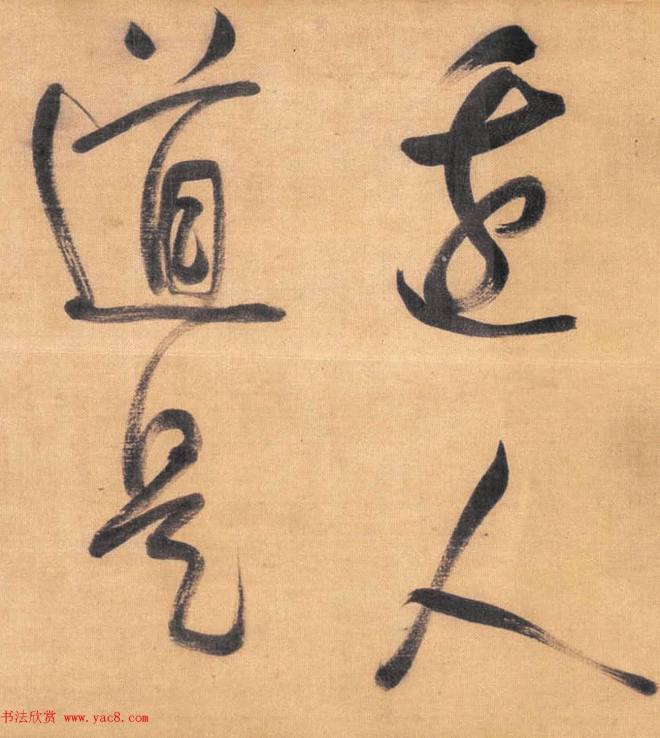 人
道是
书法欣赏 www.yac8.com